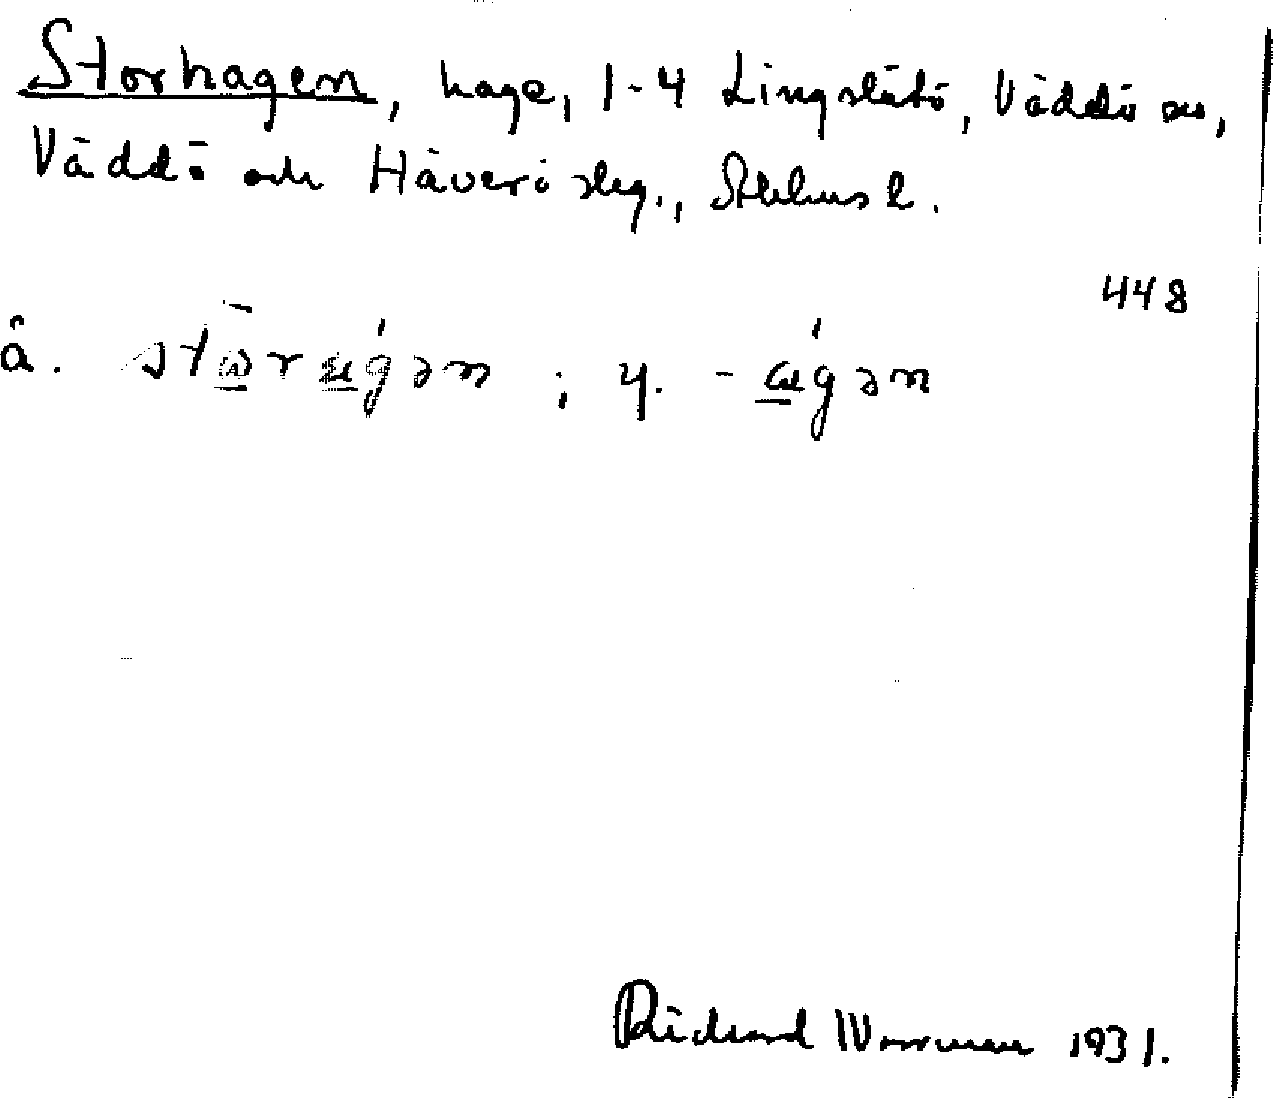 Storhagen, hage, 1-4 Lingslätö, Väddö sn,
Väddö och Häverö slg., Sthlms l.
448
å. stω̄rągən ; y. -ągən
Richard Wessman 1931.